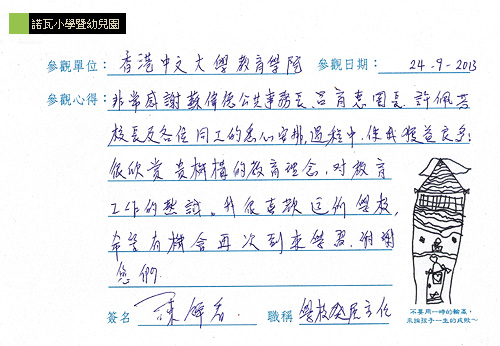 諾瓦小學暨幼兒園
參觀單位：香港中文大學教育學院 參觀日期：24-9-2013
參觀心得：非常感謝蘇偉德公共事務長、呂育惠園長、許佩
校長及各位同工的悉心安排，過程中，使我獲益良多；
很欣賞貴機構的教育理念，對教育
工作的熱誠。我很喜歡這所學校，
希望有機會再次到來學習，謝謝
您們。
簽名 陳 職稱 學校發展主任
不要用一時的輸贏，
來論孩子一生的成敗～